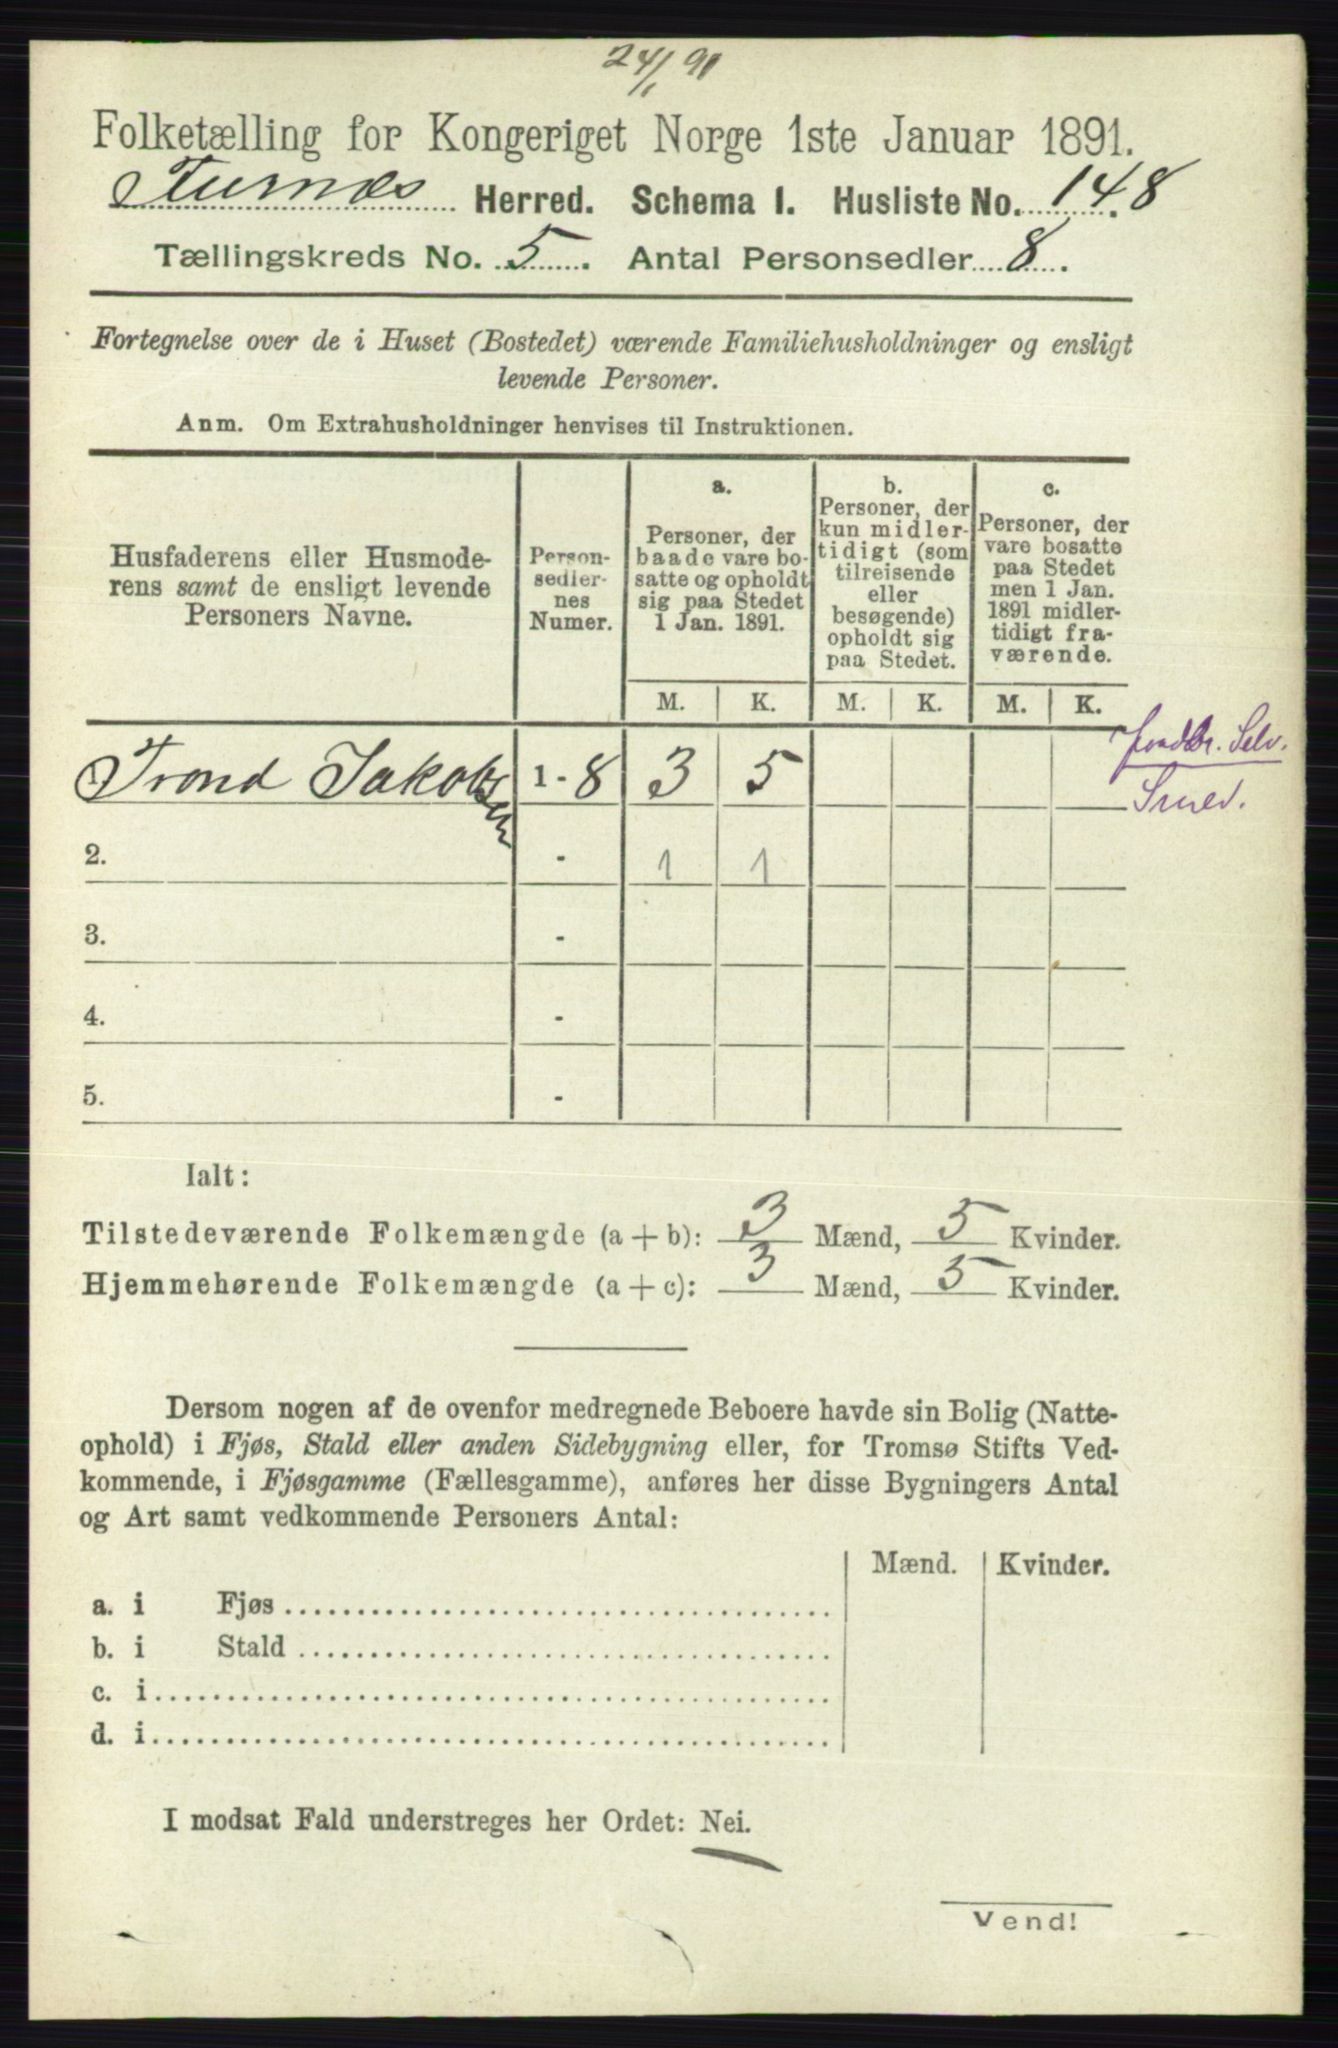 24/1 91
Folketælling for Kongeriget Norge 1ste Januar 1891.
Furnæs Herred. Schema 1. Husliste No. 148.
Tællingskreds No. 5. Antal Personsedler 8.
Fortegnelse over de i Huset (Bostedet) værende Familiehusholdninger og ensligt
levende Personer.
Anm. Om Extrahusholdninger henvises til Instruktionen.
Husfaderens eller Husmode-
rens samt de ensligt levende
Personers Navne.
Person-
sedler-
nes
Numer.
a.
Personer, der
baade vare bo-
satte og opholdt
sig paa Stedet
1 Jan. 1891.
b.
Personer, der
kun midler-
tidigt (som
tilreisende
eller
besøgende)
opholdt sig
paa Stedet.
c.
Personer, der
vare bosatte
paa Stedet
men 1 Jan.
1891 midler-
tidigt fra-
værende.
M. K. M. K. M. K.
Trond Jakobsen 1 - 8 3 5
Selv.
Smed.
2. - 1 1
3. -
4. -
5. -
Ialt:
Tilstedeværende Folkemængde (a + b): 3 Mænd, 5 Kvinder.
Hjemmehørende Folkemængde (a + c): 3 Mænd, 5 Kvinder.
Dersom nogen af de ovenfor medregnede Beboere havde sin Bolig (Natte-
ophold) i Fjøs, Stald eller anden Sidebygning eller, for Tromsø Stifts Ved-
kommende, i Fjøsgamme (Fællesgamme), anføres her disse Bygningers Antal
og Art samt vedkommende Personers Antal:
Mænd. Kvinder.
a. i Fjøs
b. i Stald
c. i
d. i
I modsat Fald understreges her Ordet: Nei.
Vend!